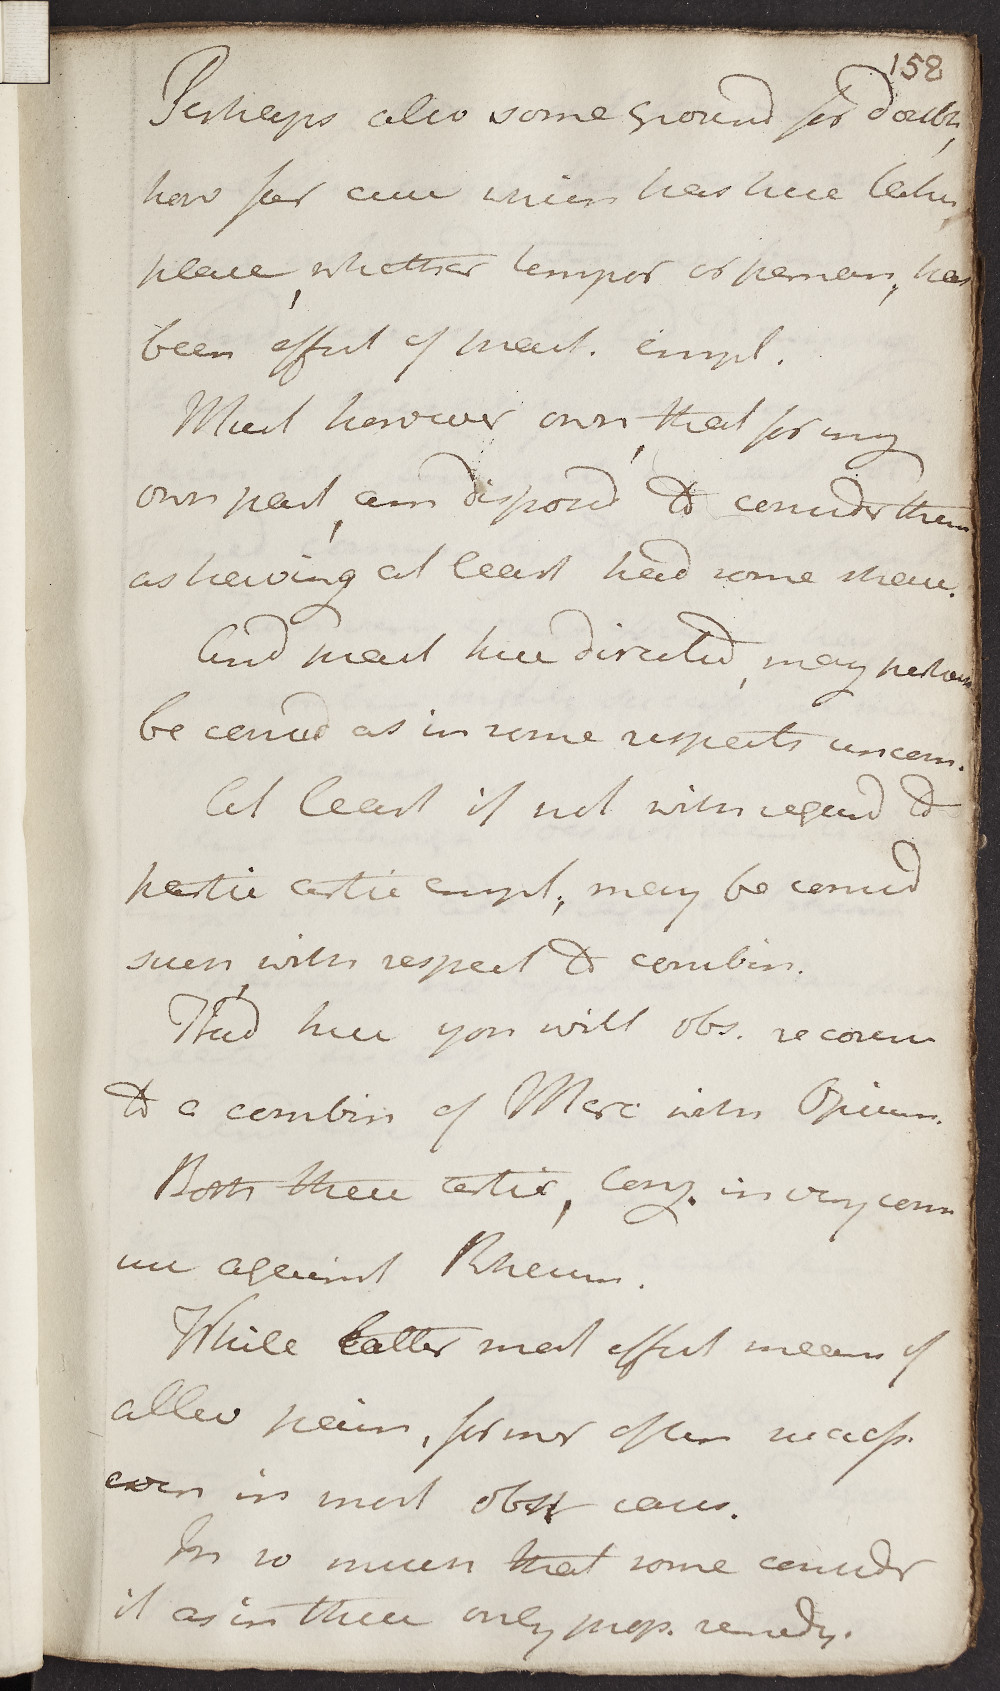 158
Perhaps also some ground for doubt,
how far cure which has here taken
place, whether tempor or perman, has
been effect of pract. empl.
Must however own, that for my
own part, am disposd to consider them
as having at least had some share.
And pract here directed, may perhaps
be considd as in some respects uncom.
At least if not with regard to
partic artic empl, may be considd
such, with respect to combin.
Had here you will obs. recourse
to a combin of Merc with Opium.
Both these artic, long in very com
use against Rheum.
While latter most effect means of
allev pain, former often success.
even in most obst cases.
In so much that some consider
it as in these only prop. remedy.